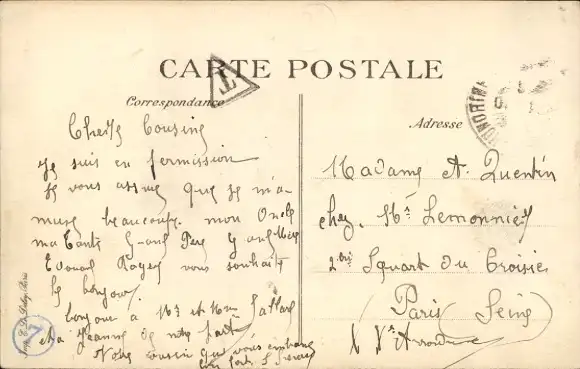 CARTE POSTALE
T
Correspondance
Adresse
Chers Cousins
Je suis en permission
je vous assure que je m'a-
muse beaucoup. mon Oncle
ma Tante Grand Père Grand Mère
Edouard Roger vous souhaite
le bonjour
bonjour à Mr et Mme
et à Jeanne de notre part
Notre cousin qui vous embrasse
bien fort
Madame A. Quentin
chez Mr Lemonnier
2 Square du Croisic
Paris (Seine)